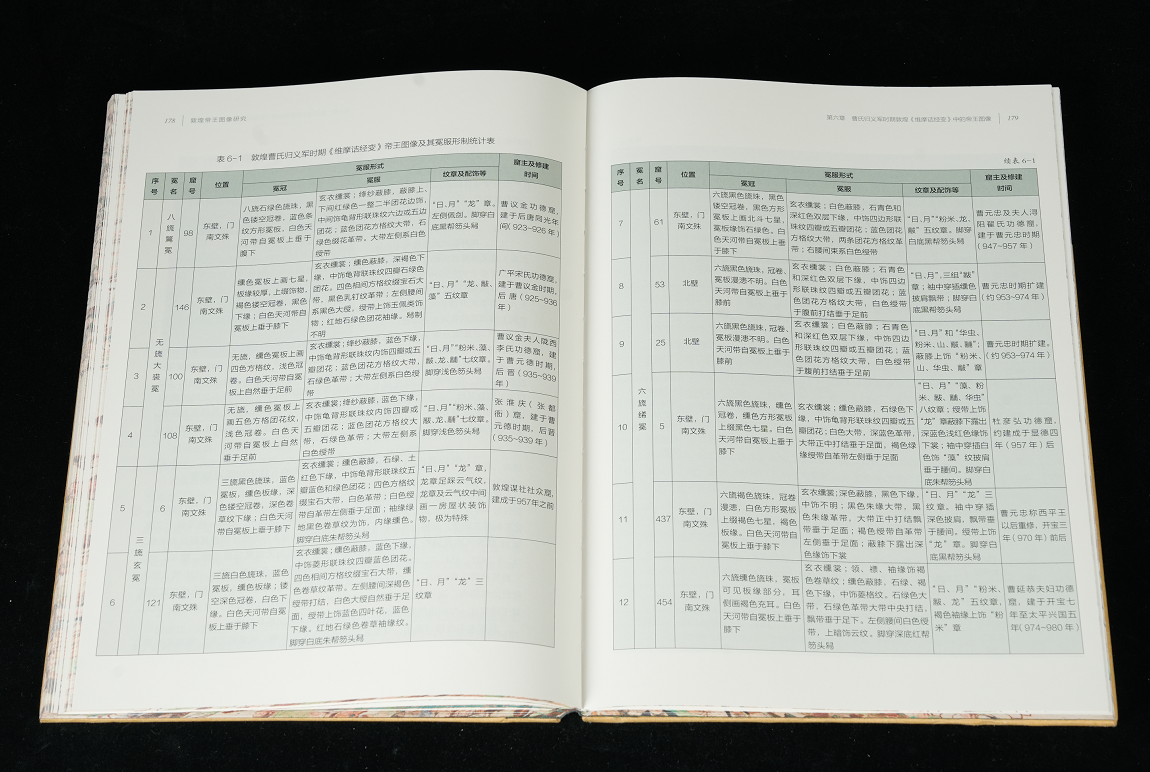 178 敦煌帝王图像研究
表 6-1 敦煌曹氏归义军时期《维摩诘经变》帝王图像及其冕服形制统计表
序号 冕名 窟号 位置 冕服形式 窟主及修建时间
冕冠 冕服 纹章及配饰等
1
八旒冕
98
东壁，门
南文殊
八旒石绿色旒珠，黑
色镂空冠卷，蓝色条
纹方形冕板，白色天
河带自冕板上垂于
腹下
玄衣纁裳；绛纱蔽膝，蔽膝上、
下间红绿色一整二半团花边饰，
中间饰龟背形联珠纹六边或五边
团花，蓝色团花方格纹大带，石
绿色缬花革带，大带左侧系白色
绶带
“日、月”“龙”章，
左侧佩剑。脚穿白
底黑帮笏头舄
曹议金功德窟，
建于后唐同光年
间（923~926年）
2
无旒大裘冕
146
东壁，门
南文殊
纁色冕板上画七星，
板缘较厚，上缀饰物，
褐色镂空冠卷，黑色
下缘；白色天河带自
冕板上垂于膝下
玄衣纁裳；纁色蔽膝，深褐色下
缘，中饰龟背联珠纹四瓣石绿色
花。四色相间方格纹缀宝石大
带，黑色乳钉纹革带；左侧腰间
系黑色大绶，绶带上饰玉佩类饰
物；红地石绿色团花袖缘。舄制
不明
“日、月”“龙、黻、
藻”五纹章
广平宋氏功德窟，
建于曹议金时期，
后唐（925~936
年）
3
100
东壁，门
南文殊
无旒，纁色冕板上画
四色方格纹，浅色冠
卷。白色天河带自冕
板上自然垂于足前
玄衣纁裳；绛纱蔽膝，蓝色下缘，
中饰龟背形联珠纹内饰四瓣或五
瓣团花；蓝色团花方格纹大带，
石绿色革带；大带左侧系白色绶
带
“日、月”“粉米、藻、
黻、龙、黼”七纹章。
脚穿浅色笏头舄
曹议金夫人陇西
李氏功德窟，建
于曹元德时期，
后晋（935~939
年）
4
108
东壁，门
南文殊
无旒，纁色冕板上
画五色方格团花纹，
浅色冠卷。白色天
河带自冕板上自然
垂于足前
玄衣纁裳；绛纱蔽膝，蓝色下缘，
中饰龟背形联珠纹内饰四瓣或
五瓣团花；蓝色团花方格纹大
带，石绿色革带；大带左侧系
白色绶带
“日、月”“粉米、藻、
黻、龙、黼”七纹章。
脚穿浅色笏头舄
张淮庆（张都
衙）窟，建于曹
元德时期，后晋
（935~939年）
5
三旒玄冕
6
东壁，门
南文殊
三旒黑色旒珠，蓝色
冕板，纁色板缘，深
色镂空冠卷，深色卷
草纹下缘；白色天河
带自冕板上垂于膝下
玄衣纁裳；纁色蔽膝，石绿、土
红色下缘，中饰龟背形联珠纹五
瓣蓝色和绿色团花；四色方格纹
缀宝石大带，白色革带；白色绶
带自革带左侧垂于足面；袖缘绿
地黑色卷草纹为饰，内缘纁色。
脚穿白底朱帮笏头舄
“日、月”“龙”章，
龙章足踩云气纹，
龙章及云气纹中间
画一房屋状装饰
物，极为特殊
敦煌谋社社众窟，
建成于957年之前
6
121
东壁，门
南文殊
三旒白色旒珠，蓝色
冕板，纁色板缘；镂
空深色冠卷，白色下
缘。白色天河带自冕
板上垂于膝下
玄衣纁裳；纁色蔽膝，蓝色下缘，
中饰菱形联珠纹四瓣蓝色团花。
四色相间方格纹缀宝石大带，纁
色卷草纹革带。左侧腰间深褐色
绶带打结，白色大绶自然垂于足
面，绶带上饰蓝色四叶花，蓝色
下缘，红地石绿色卷草袖缘纹。
脚穿白底朱帮笏头舄
“日、月”“龙”三
纹章
第六章 曹氏归义军时期敦煌《维摩诘经变》中的帝王图像 179
续表 6-1
序号 冕名 窟号 位置 冕服形式 窟主及修建时间
冕冠 冕服 纹章及配饰等
7
六旒𫄨冕
61
东壁，门
南文殊
六旒黑色旒珠，黑色
镂空冠卷，黑色方形
冕板上画北斗七星，
冕板缘饰石绿色。白
色天河带自冕板上垂
于膝下
玄衣纁裳；白色蔽膝，石青色和
深红色双层下缘，中饰四边形
联珠纹四瓣或五瓣团花；蓝色团
花方格纹大带，两条团花方格纹革
带；右膝间束系白色绶带
“日、月”“粉米、龙、
黻”五纹章。脚穿
白底黑帮笏头舄
曹元忠及夫人浔
阳翟氏功德窟，
建于曹元忠时期
（947~957年）
8
53
北壁
六旒黑色旒珠，冠卷、
冕板漫漶不明。白色天
河带自冕板上垂于
膝前
玄衣纁裳；白色蔽膝；石青色
和深红色双层下缘，中饰四边
形联珠纹四瓣或五瓣团花；蓝
色团花方格纹大带，白色绶带
于腹前打结垂于足前
“日、月”，三组“黻”
章；袖中穿插纁色
披肩飘带；脚穿白
底黑帮笏头舄
曹元忠时期扩建
（约953~974年）
9
25
北壁
六旒黑色旒珠，冠卷、
冕板漫漶不明。白色
天河带自冕板上垂于
膝前
玄衣纁裳；白色蔽膝；石青色
和深红色双层下缘，中饰四边
形联珠纹四瓣或五瓣团花；蓝
色团花方格纹大带，白色绶带
于腹前打结垂于足前
“日、月”和“华虫、
粉米、山、黻、黼”；
蔽膝上饰“粉米、
山、华虫、黻”章
曹元忠时期扩建，
（约953~974年）
10
5
东壁，门
南文殊
六旒黑色旒珠，纁色
冠卷，纁色方形冕板
上缀黑色七星。白色
天河带自冕板上垂于
膝下
玄衣纁裳；纁色蔽膝，石绿色下
缘，中饰四边形联珠纹四瓣或五
瓣团花；白色大带，深蓝色革带，
大带正中打结垂于足面，褐色绿
缘绶带自革带左侧垂于足面
“日、月”“藻、粉
米、黻、黼、华虫”
八纹章；绶带上饰
“龙”章蔽膝下露出
深蓝色浅红色缘饰
下裳；袖中穿插白
色饰“藻”纹披肩
垂于腰间。脚穿白
底朱帮笏头舄
杜彦弘功德窟，
约建成于显德四
年（957年）后
11
437
东壁，门
南文殊
六旒褐色旒珠，冠卷
漫漶，白色方形冕板
上缀褐色七星，褐色
板缘。白色天河带自
冕板上垂于膝下
玄衣纁裳；深色蔽膝，黑色下缘，
中饰不明；黑色朱缘大带，
黑色朱缘革带，大带正中打结飘
带垂于足面；褐色绶带自革带
左侧垂于足面；蔽膝下露出深
色缘饰下裳
“日、月”“龙”三
纹章。袖中穿插
深色披肩，飘带垂
于腰间。绶带上饰
“龙”章。脚穿白
底黑帮笏头舄
曹元忠称西平王
以后重修，开宝三
年（970年）前后
12
454
东壁，门
南文殊
六旒纁色旒珠，冕板
可见板缘部分，耳
侧画褐色充耳。白色
天河带自冕板上垂于
膝下
玄衣纁裳；领、襟、袖缘饰褐
色卷草纹；纁色蔽膝，石绿、褐
色下缘，中饰菱格纹。石绿色大
带，石绿色革带大带中央打结，
飘带垂于足下。左侧腰间白色绶
带，上暗饰云纹。脚穿深底红帮
笏头舄
“日、月”“粉米、
黻、龙”五纹章，
褐色袖缘上饰“粉
米”章
曹延恭夫妇功德
窟，建于开宝七
年至太平兴国五
年（974~980年）